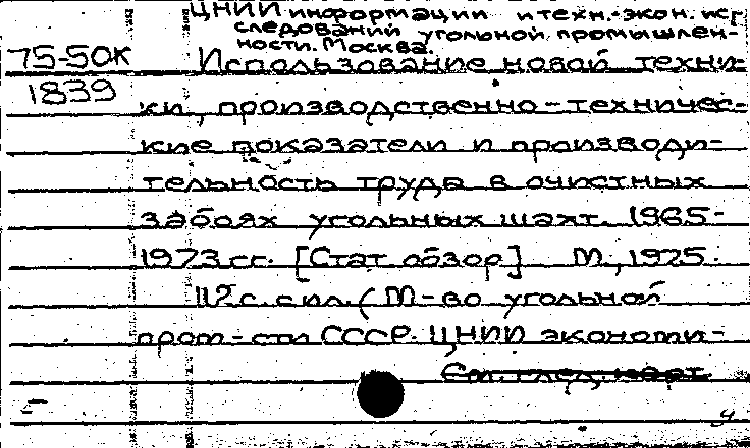 ЦНИИ информации и техн.-экон. ис-
следований угольной промышлен-
ности. Москва.
75-50К
Использование новой техни-
1839
ки, производственно-техничес-
кие показатели и производи-
тельность труда в очистных
забоях угольных шахт. 1965-
1973 гг. [Стат обзор] М., 1975.
112 с. с ил. (М-во угольной
пром-сти СССР. ЦНИИ экономи-
См. след. карт.